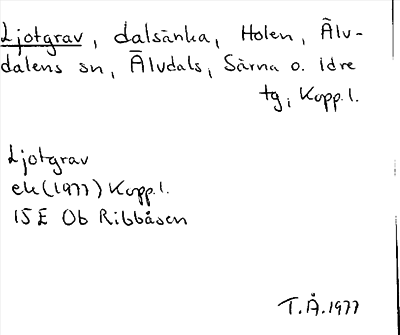 Ljotgrav, dalsänka, Holen, Älv-
dalens sn, Älvdals, Särna o. Idre
tg, Kopp.l.
Ljotgrav
ek (1977) Kopp.l.
15 E Ob Ribbåsen
T.Å. 1977